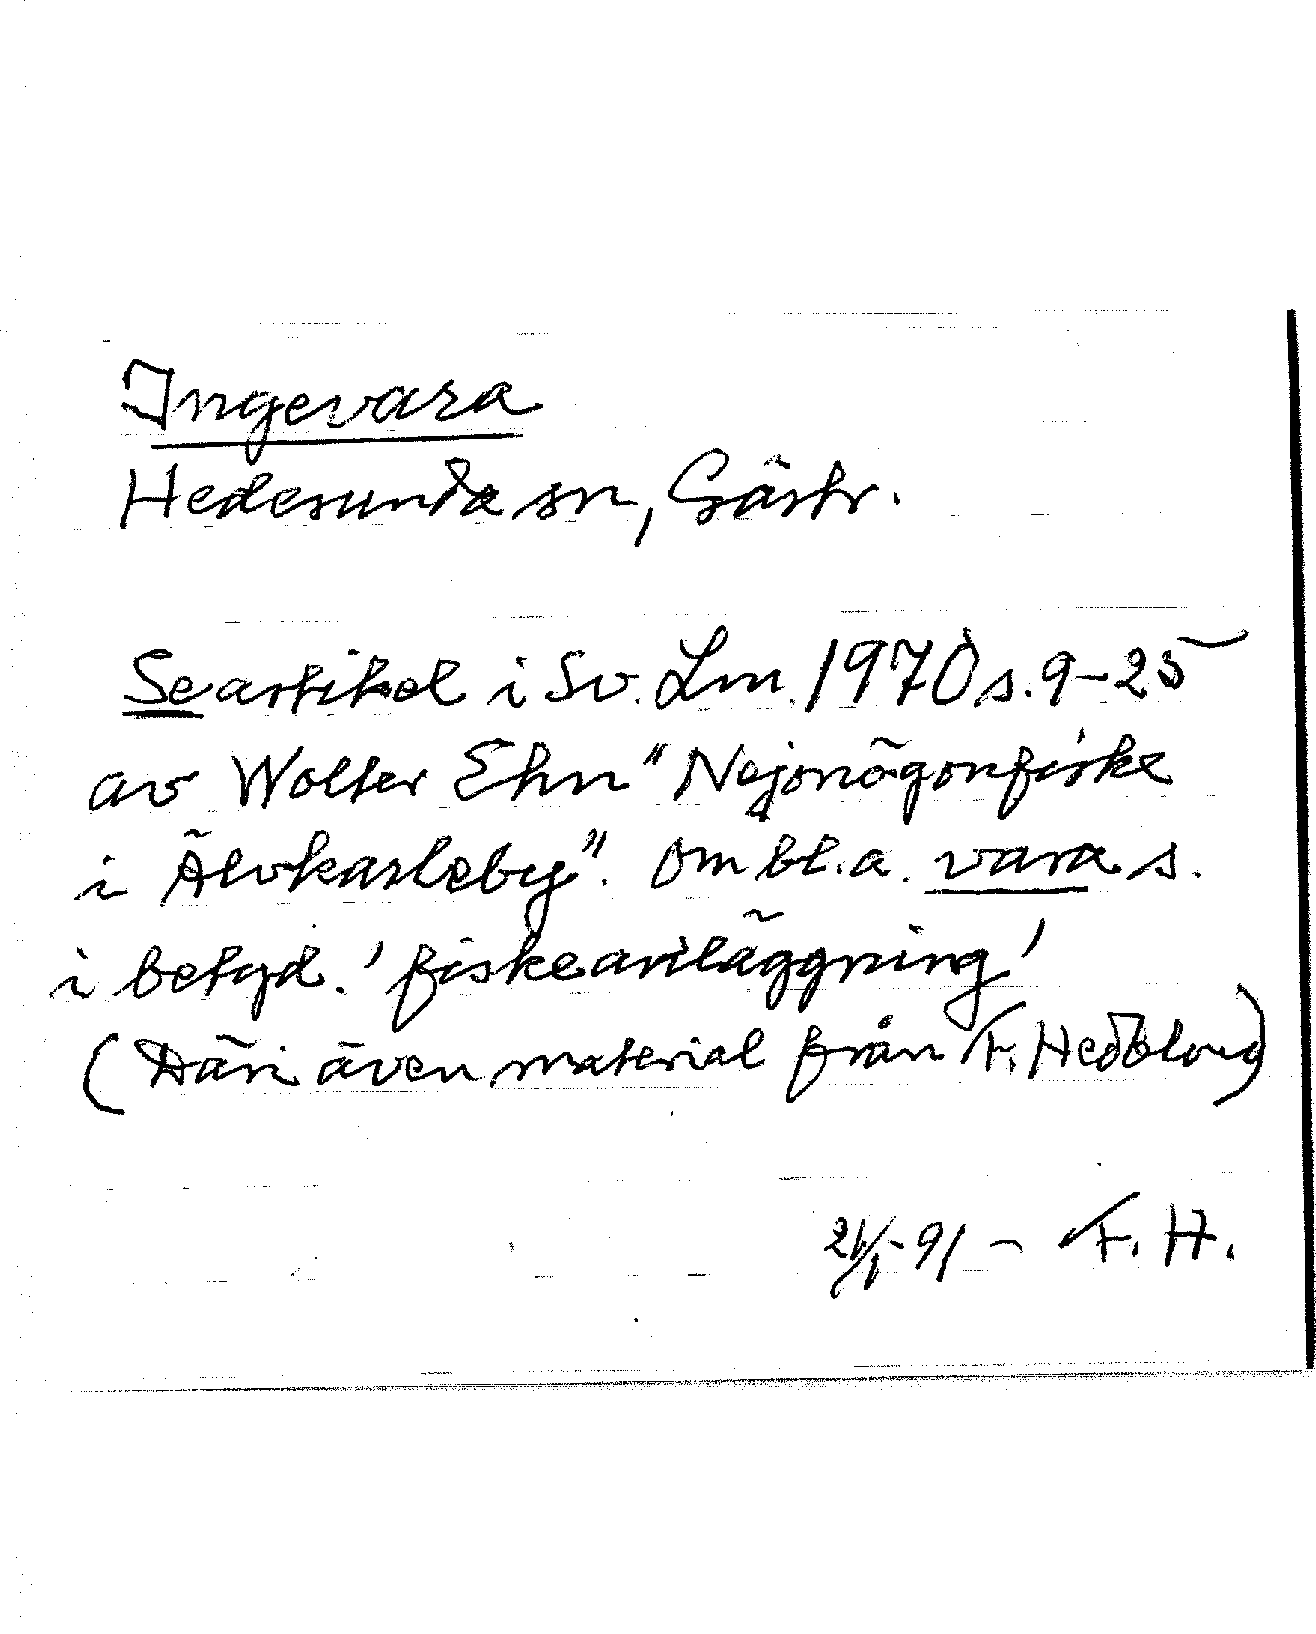 Ingevara
Hedesunda sn, Gästr.
Se artikel i Sv. Lm. 1970 s. 9-25
av Wolter Ehn "Nejonögonfiske
i Älvkarleby". Om bl.a. vara s.
i betyd. 'fiskeanläggning'
(Däri även material från F. Hedblom)
21/1-91 - F. H.